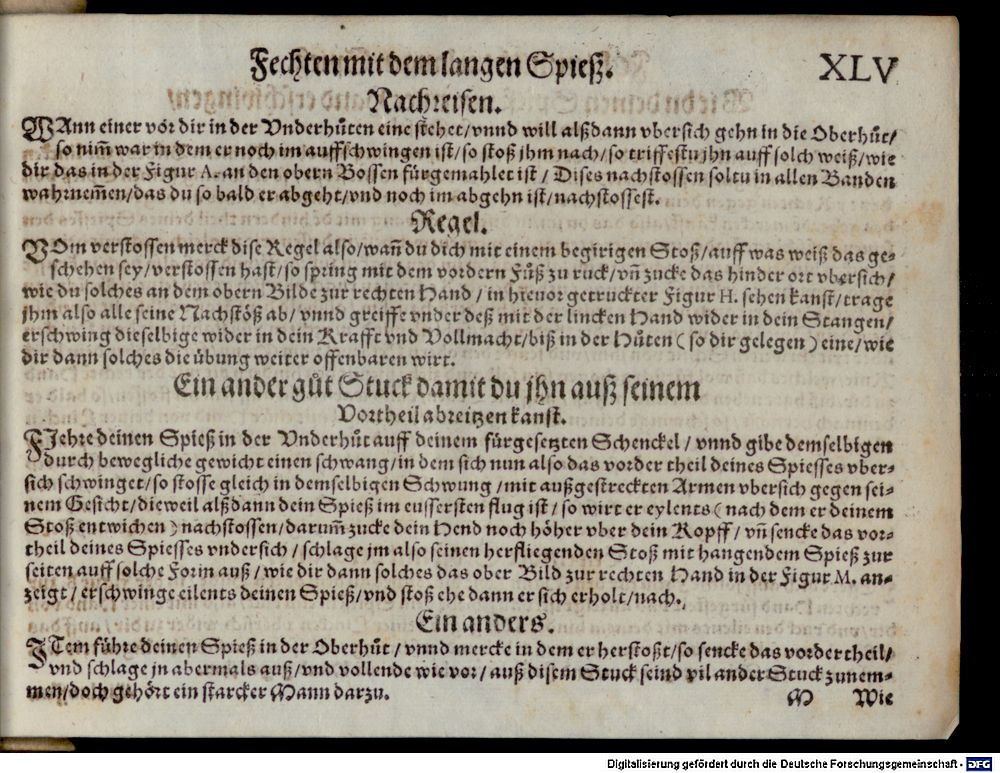 Fechten mit dem langen Spieß.
XLV
Nachreisen.
WAnn einer vor dir in der Vnderhůten eine stehet/vnnd will alßdann vbersich gehn in die Oberhůt/
so nim̃ war in dem er noch im auffschwingen ist/so stoß jhm nach/so triffestu jhn auff solch weiß/wie
dir das in der Figur A. an den obern Bossen fürgemahlet ist / Dises nachstossen soltu in allen Banden
wahrnem̃en/das du so bald er abgeht/vnd noch im abgehn ist/nachstossest.
Regel.
VOm verstossen merck dise Regel also/wañ du dich mit einem begirigen Stoß/auff was weiß das ge-
schehen sey/verstossen hast/so spring mit dem vordern Fůß zu ruck/vñ zucke das hinder ort vbersich/
wie du solches an dem obern Bilde zur rechten Hand / in hieuor getruckter Figur H. sehen kanst/trage
jhm also alle seine Nachstöß ab/ vnnd greiffe vnder deß mit der lincken Hand wider in dein Stangen/
erschwing dieselbige wider in dein Krafft vnd Vollmacht/biß in der Hůten ( so dir gelegen ) eine/wie
dir dann solches die übung weiter offenbaren wirt.
Ein ander gůt Stuck damit du jhn auß seinem
Vortheil abreitzen kanst.
FJehre deinen Spieß in der Vnderhůt auff deinem fürgesetzten Schenckel / vnnd gibe demselbigen
durch bewegliche gewicht einen schwang/in dem sich nun also das vorder theil deines Spiesses vber-
sich schwinget/so stosse gleich in demselbigen Schwung / mit außgestreckten Armen vbersich gegen sei-
nem Gesicht/dieweil alßdann dein Spieß im eussersten flug ist / so wirt er eylents ( nach dem er deinem
Stoß entwichen ) nachstossen/darum̃ zucke dein Hend noch höher vber dein Kopff / vñ sencke das vor-
theil deines Spiesses vndersich / schlage jm also seinen herfliegenden Stoß mit hangendem Spieß zur
seiten auff solche Form auß / wie dir dann solches das ober Bild zur rechten Hand in der Figur M. an-
zeigt / erschwinge eilents deinen Spieß/vnd stoß ehe dann er sich erholt/nach.
Ein anders.
JTem führe deinen Spieß in der Oberhůt / vnnd mercke in dem er herstoßt/so sencke das vordertheil/
vnd schlage jn abermals auß/vnd vollende wie vor/ auß disem Stuck seind vil ander Stuck zunem-
men/doch gehört ein starcker Mann darzu.
M Wie
Digitalisierung gefördert durch die Deutsche Forschungsgemeinschaft - DFG